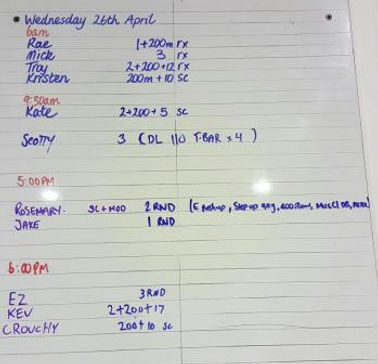 Wednesday 26th April
6am
Rae 1+200m rx
Mick 3 rx
Troy 2+200+12 rx
Kristen 200m+10 sc
9:30am
Kate 2+200+5 sc
Scotty 3 (DL 110 T-BAR x 4)
5:00PM
ROSEMARY. SC+MOD 2 RND
JAKE 1 RND
6:00PM
EZ 3 RND
KEV 2+200+17
CROUCHY 200+10 sc